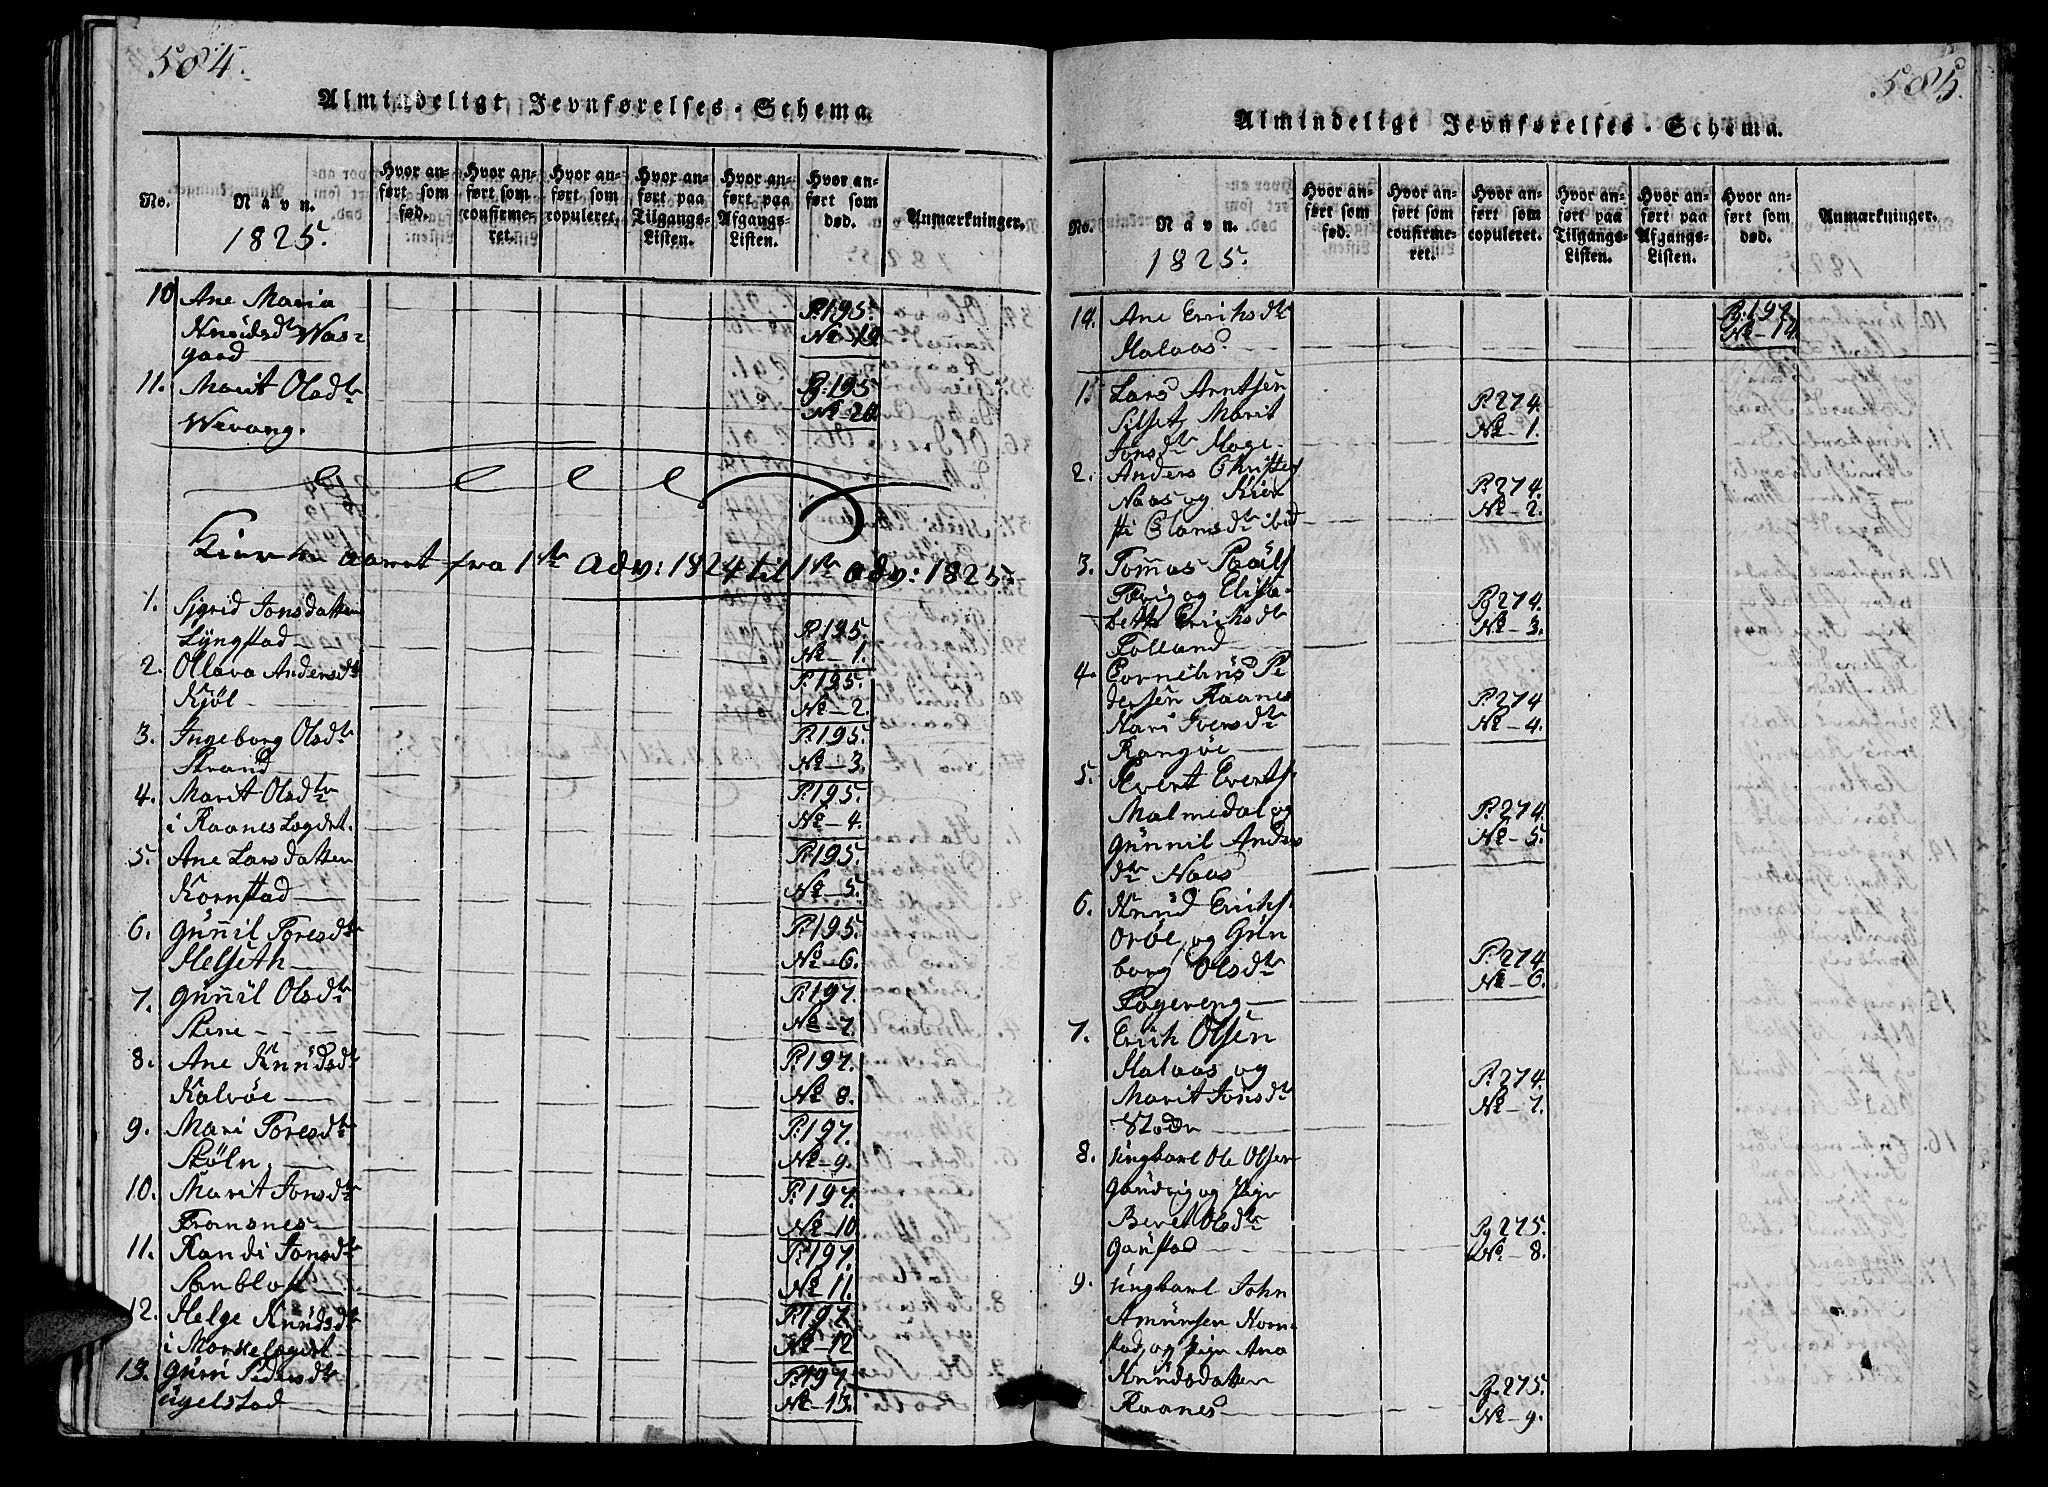 584.
Almindeligt Jevnførelses-Schema.
No.
Navn.
1825.
Hvor an-
ført som
fød.
Hvor an-
ført som
confirme-
ret.
Hvor an-
ført som
copuleret.
Hvor an-
ført paa
Tilgangs-
Listen.
Hvor an-
ført paa
Afgangs-
Listen.
Hvor an-
ført som
død.
Anmærkninger.
10 Ane Maria
Knüdsdtr Was-
gaard P: 195.
No 19.
11. Marit Olsdtr
Wevang. Pg: 195
No 20.
aaret fra 1ste Adv: 1824 til 1ste Adv: 1825.
1. Sigrid Jonsdatter
Lÿngstad P: 195.
No 1.
2. Ollava Andersdtr
Kjöl P: 195.
No 2.
3. Ingeborg Olsdtr
Strand P: 195
No 3.
4. Marit Olsdtr
i Raanes Logdet. P: 195.
No 4.
5. Ane Larsdatter
Kornstad P: 195.
No 5.
6. Günnil Toresdtr
Helseth P: 195.
No 6.
7. Günnil Olsdtr
Stene P: 197.
No 7.
8. Ane Knüdsdtr
Kalvöe P: 197.
No 8.
9. Mari Toresdtr
Stöln P: 197.
No 9.
10. Marit Jonsdtr
Framsnes P: 197.
No 10.
11. Randi Jonsdtr
Sandblost P: 197.
No 11.
12. Helge Knüdsdtr
i P: 197.
No 12
13. Güri Pedersdtr
Ugelstad P: 197.
No 13.
585.
Almindeligt Jevnførelses-Schema.
No.
Navn.
1825.
Hvor an-
ført som
fød.
Hvor an-
ført som
confirme-
ret.
Hvor an-
ført som
copuleret.
Hvor an-
ført paa
Tilgangs-
Listen.
Hvor an-
ført paa
Afgangs-
Listen.
Hvor an-
ført som
død.
Anmærkninger.
14. Ane Eriksdtr
Halaas. Pg: 197
No 14.
1. Lars Arntsen
Silset, Marit
Jonsdtr Hoge P: 274.
No 1.
2. Anders Christens
Naas og Kier-
sti Olansdtr ibid P: 274.
No 2.
3. Tommas Paüls
Tøvig og Elisa-
beth Eriksdtr
Folland Pg 274.
No 3.
4. Cornelius Pe-
dersen Raanes
Mari Iversdtr
Rangöe P: 274
No 4.
5. Evert Everts.
Malmedal og
Günnil Anders
dtr Naas P: 274.
No 5.
6. Knüd Eriks.
Oröe, og Gün-
borg Olsdtr
Fagereng P: 274
No 6.
7. Erich Olsen
Halaas og
Marit Jonsdtr
Stodr P: 274.
No 7.
8. Ungkarl Ole Olsen
Gaüvig og Pige
Beret Olsdtr
Gaüstad Pg 275.
No 8.
9. Ungkarl John
Amünsen Korn-
stad, og Pige Ana
Knüdsdatter
Raanes Pg. 275.
No 9.